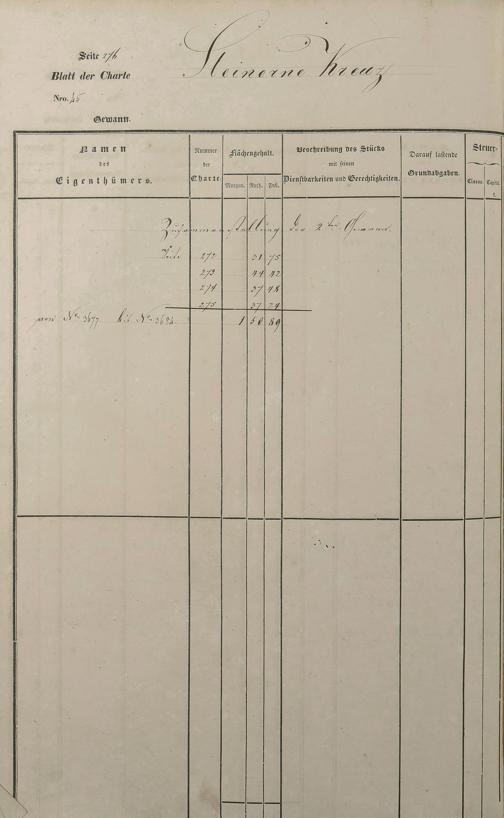 Seite 276
Steinerne Kreuz
Blatt der Charte
Nro. 45
Gewann.
Namen des Eigenthümers.
Nummer der Charte.
Flächengehalt.
Morgen. Ruth. Fuß.
Beschreibung des Stücks mit seinen Dienstbarkeiten und Gerechtigkeiten.
Darauf lastende Grundabgaben.
Steuer-
Classe. Capital.
f.
Zusammenstellung der 2ten Gewann.
Seite 272 31 75
273 44 42
274 37 48
275 37 24
von No. 3677 bis No. 3694. 1 50 89